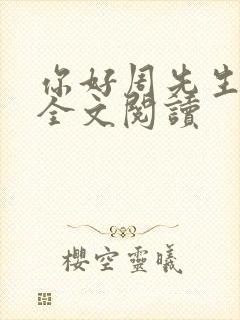 你好周先生
全文閱讀
櫻空靈曦